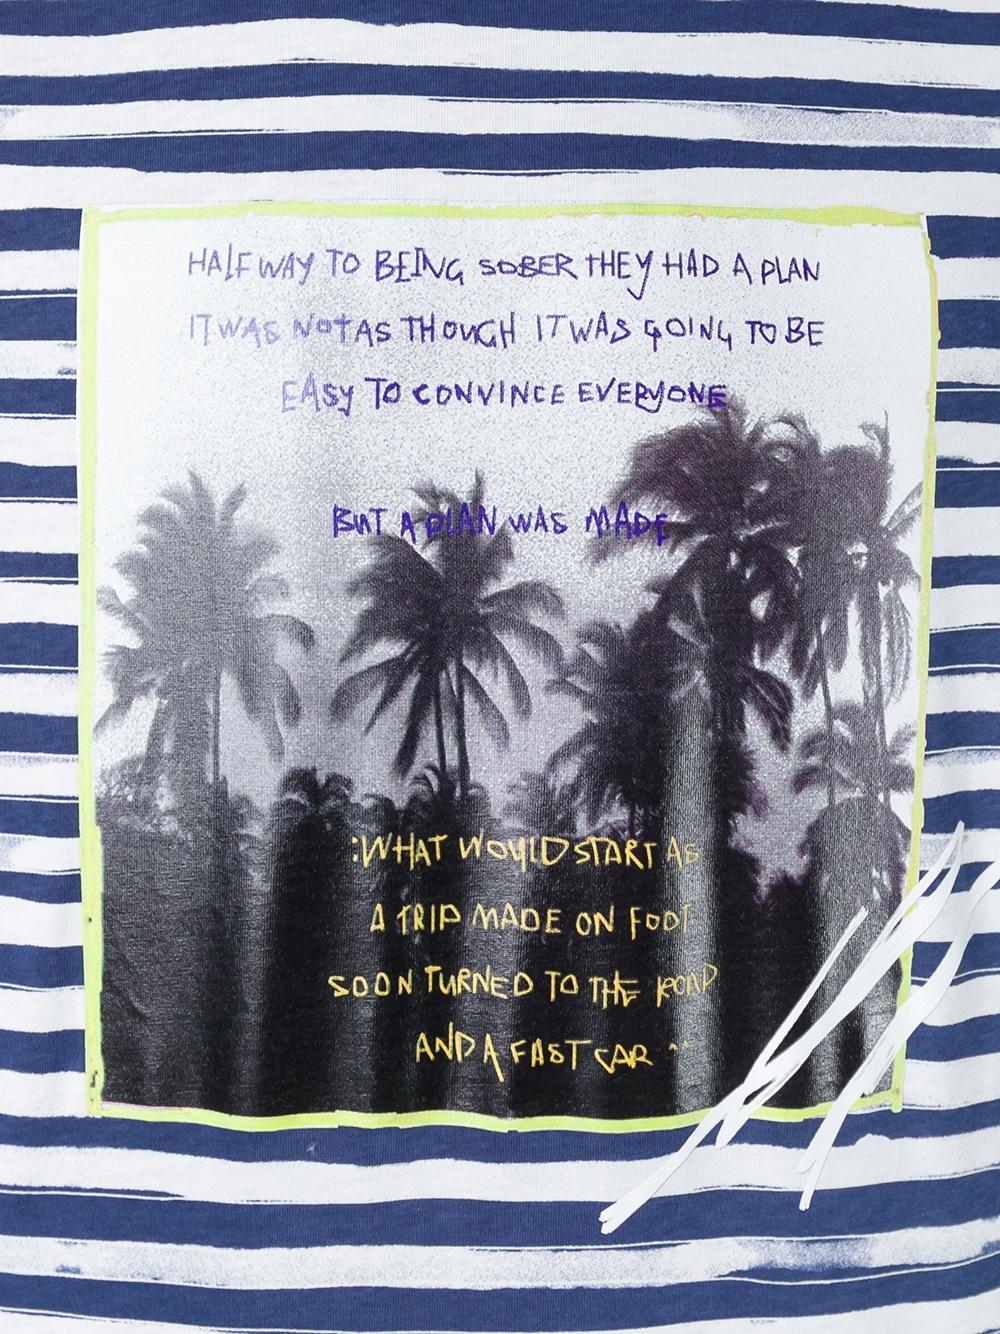 HALFWAY TO BEING SOBER THEY HAD A PLAN
IT WAS NOT AS THOUGH IT WAS GOING TO BE
EASY TO CONVINCE EVERYONE
BUT A PLAN WAS MADE
:WHAT WOULD START AS
A TRIP MADE ON FOOT
SOON TURNED TO THE ROAD
AND A FAST CAR